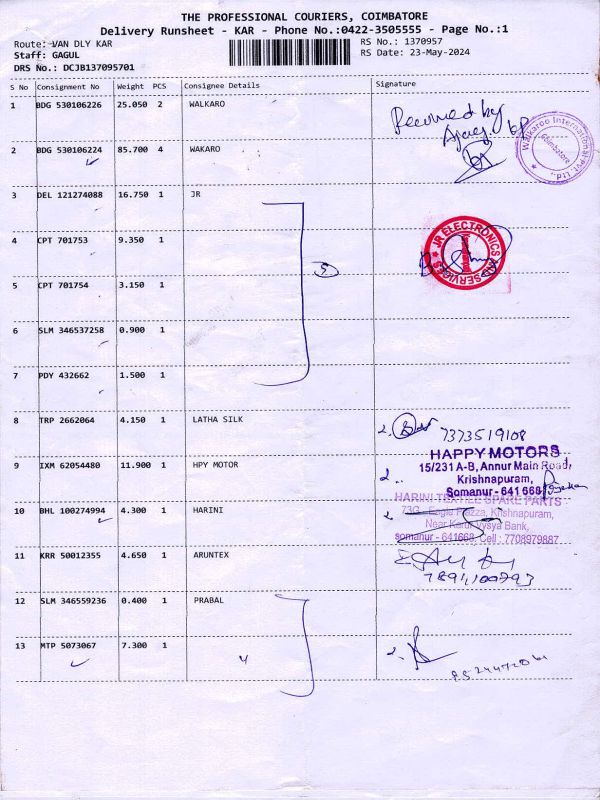 THE PROFESSIONAL COURIERS, COIMBATORE
Delivery Runsheet - KAR - Phone No.:0422-3505555 - Page No.:1
Route: VAN DLY KAR
RS No.: 1370957
Staff: GAGUL
RS Date: 23-May-2024
DRS No.: DCJB137095701
S No Consignment No Weight PCS Consignee Details Signature
1 BDG 530106226 25.050 2 WALKARO
Received by
2 BDG 530106224 85.700 4 WAKARO
Walkaroo International Pvt. Ltd.
Coimbatore
3 DEL 121274088 16.750 1 JR
4 CPT 701753 9.350 1
JR ELECTRONICS
5
5 CPT 701754 3.150 1
6 SLM 346537258 0.900 1
7 PDY 432662 1.500 1
8 TRP 2662064 4.150 1 LATHA SILK
2. 7373519108
HAPPY MOTORS
9 IXM 62054480 11.900 1 HPY MOTOR
15/231 A-B, Annur Main Road,
Krishnapuram,
Somanur - 641 668
HARINI TEXTILE SPARE PARTS
10 BHL 100274994 4.300 1 HARINI
73G, Eagle Piazza, Krishnapuram,
Near Karur Vysya Bank,
somanur - 641668. Cell : 7708979887
11 KRR 50012355 4.650 1 ARUNTEX
12 SLM 346559236 0.400 1 PRABAL
13 MTP 5073067 7.300 1
4